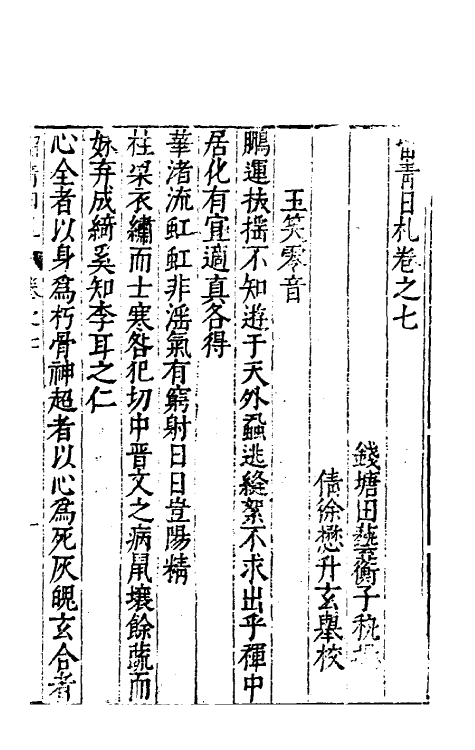 留青日札卷之七
錢塘田藝蘅子秇撰
倩徐懋升玄舉校
玉笑零音
鵬運扶搖不知遊于天外蝨逃縫絮不求出乎褌中
居化有宜適真各得
華渚流虹虹非淫氣有窮射日日豈陽精
柱梁衣繡而士寒咎犯切中晋文之病鼠壤餘蔬而
妺弃成綺奚知李耳之仁
心全者以身為朽骨神超者以心為死灰睨玄合者
留青日札 卷之七 一